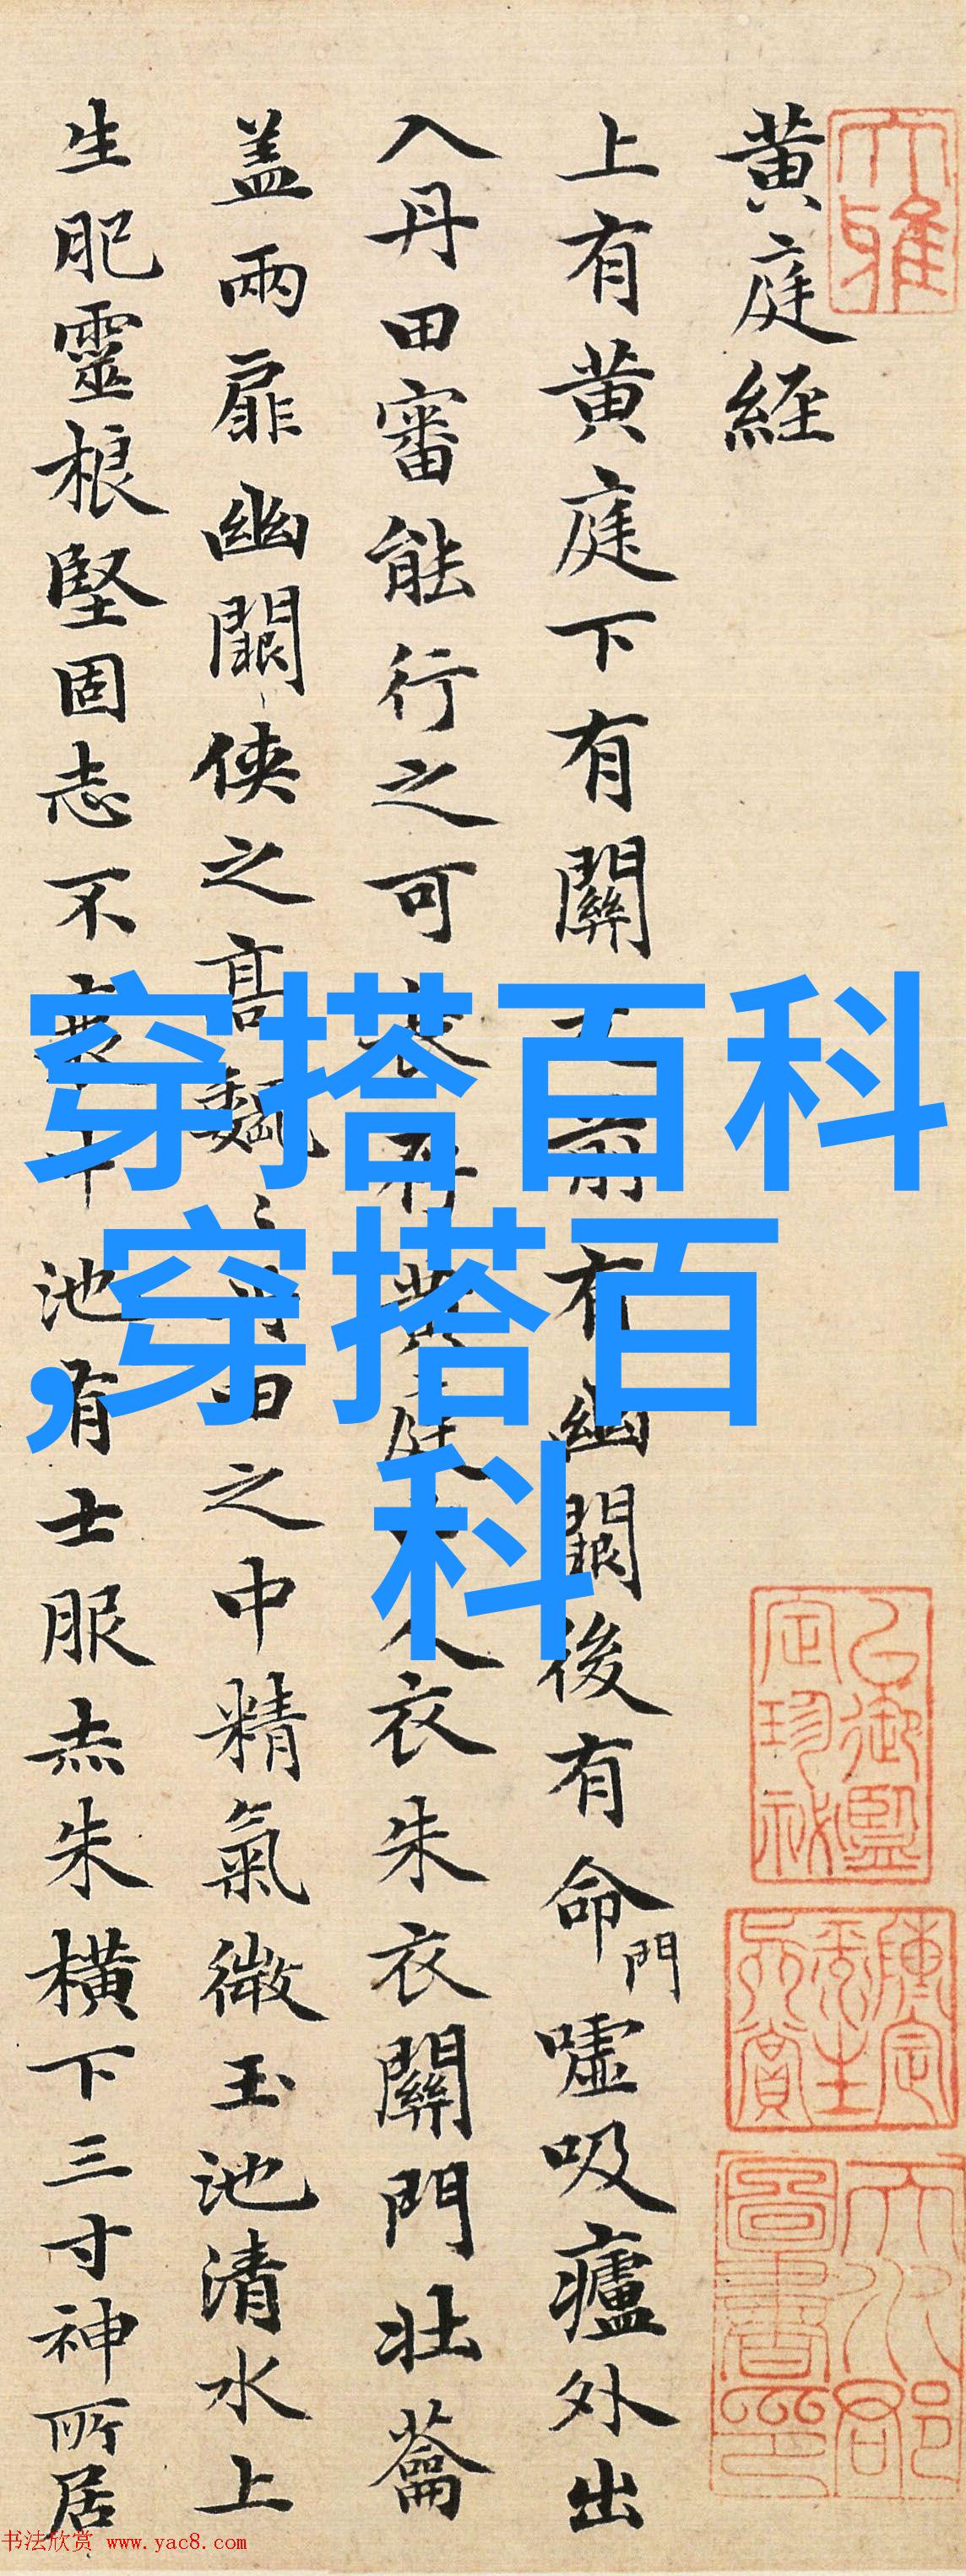 黄庭経
上有黄庭下有關前有幽闕後有命門嘘吸廬外出
入丹田審能行之可長存黄庭人衣朱衣關門壯蘥
盖兩扉幽闕侠之高巍丹田之中精氣微玉池清水上
生肥靈根堅固志不衰中池有士服赤朱横下三寸神所居
穿搭百科
,穿搭百
科
书法欣赏 www.yac8.com